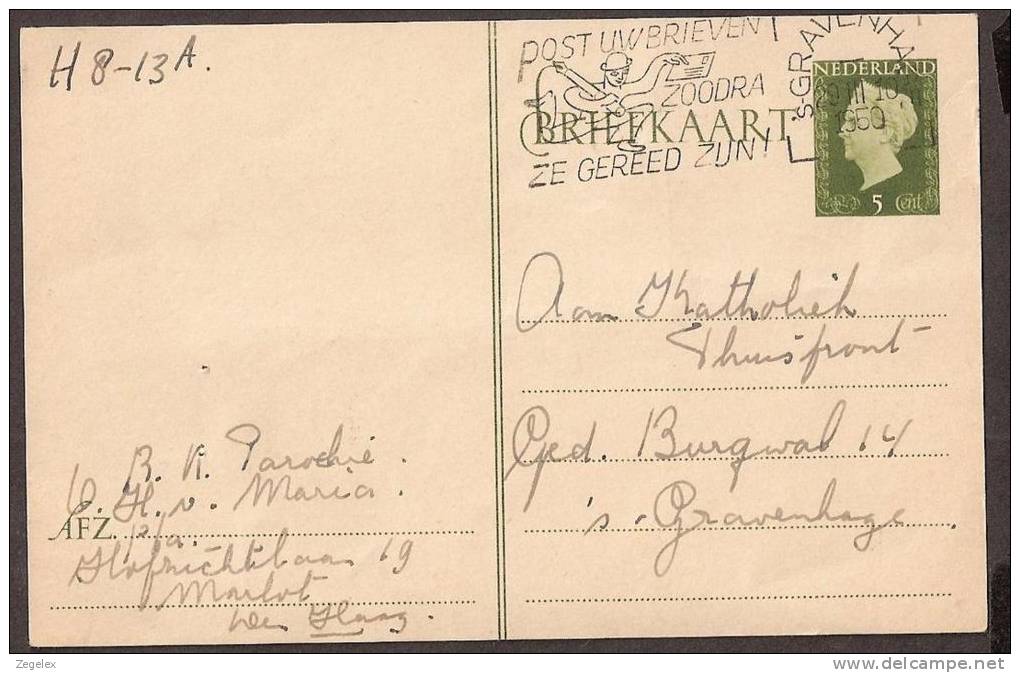 H 8-13 A.
POST UW BRIEVEN
ZOODRA
ZE GEREED ZIJN!
's-GRAVENHA
29 III 10
1950
NEDERLAND
5 Cent
BRIEFKAART
Aan Katholiek
Thuisfront
Ged. Burgwal 14
's-Gravenhage.
R. K. Parochie.
O. H. v. Maria.
AFZ. p/a.
19
Marlot
Den Haag.
Zegelex
www.delcampe.net